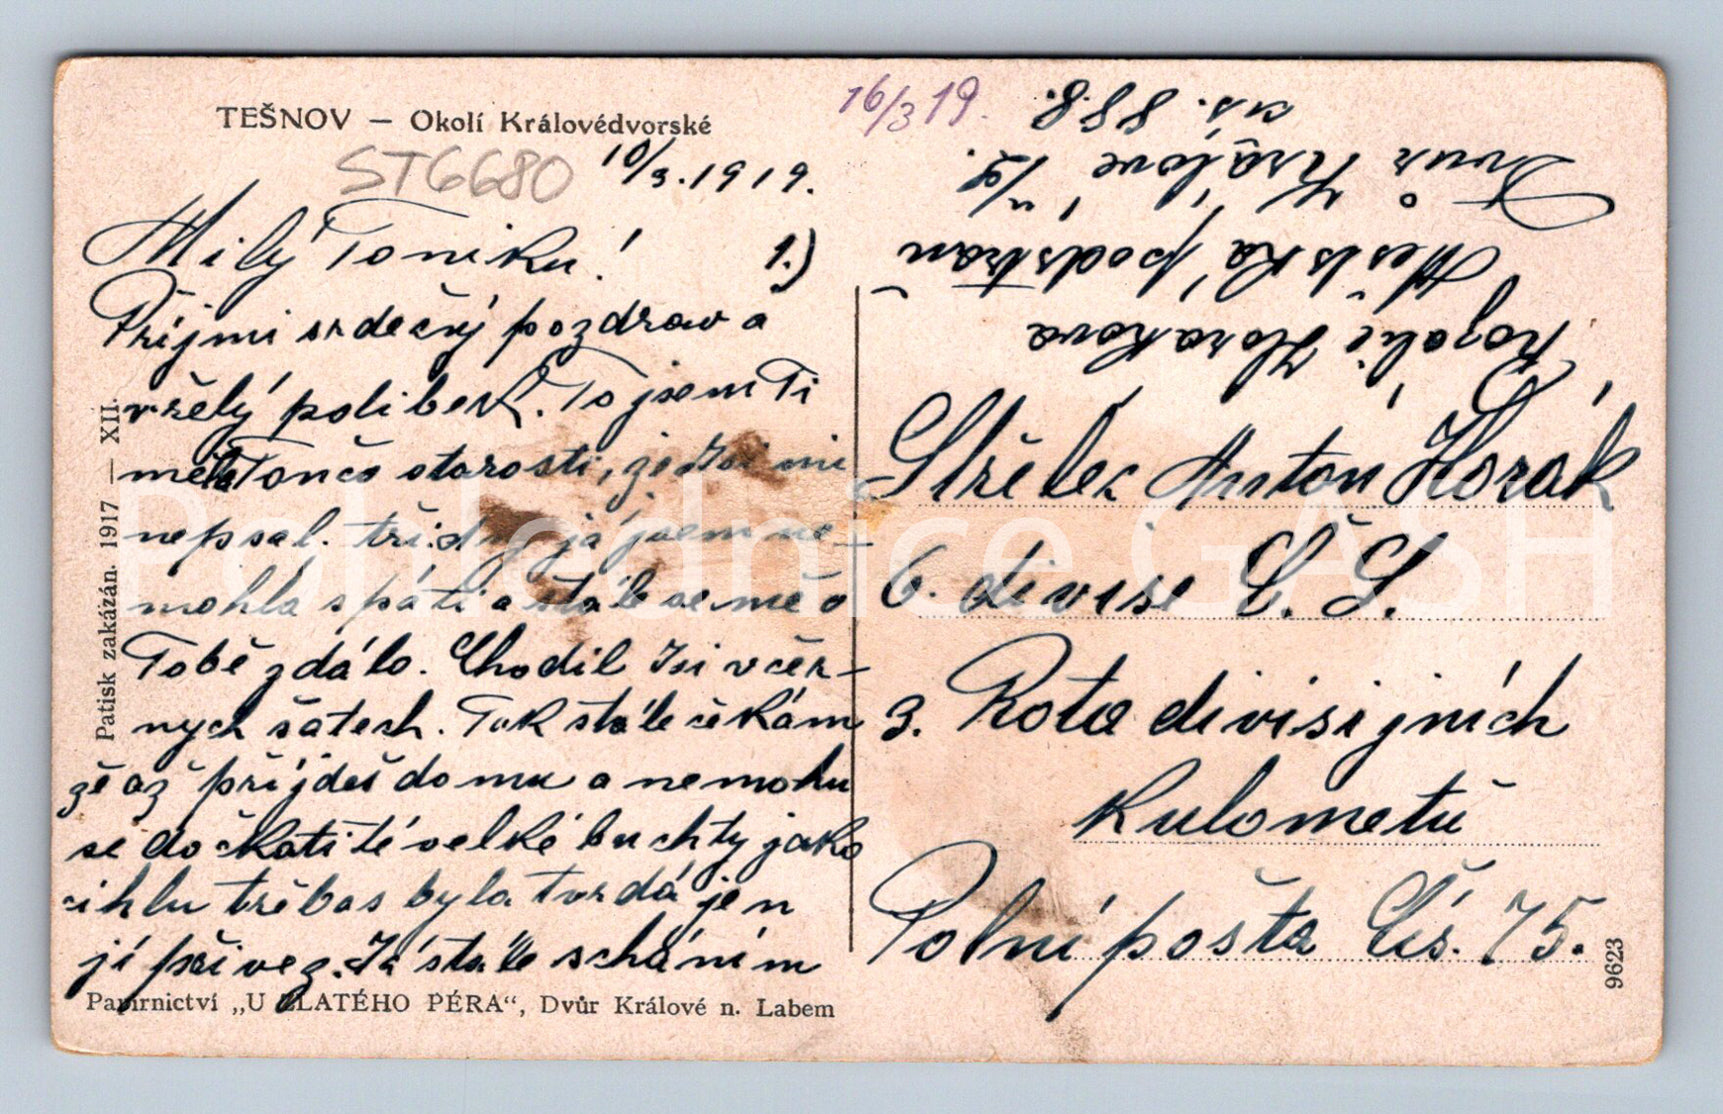 TEŠNOV — Okolí Královédvorské
ST6680
10/3.1919.
Milý Toníku! 1.)
Příjmi srdečný pozdrav a
vřelý polibek. To jsem Ti
měla Tončo starosti, že Jsi mi
nepsal. tři dny já jsem ne-
mohla spáti a stále se mě o
Tobě zdálo. Chodil Jsi v čer-
nych šatech. Tak stále čekám
že až příjdeš domu a nemohu
se dočkati té velké buchty jako
cihlu třebas byla tvrdá jen
jí přivez. Já stále scháním
Papírnictví „U ZLATÉHO PÉRA“, Dvůr Králové n. Labem
Patisk zakázán. 1917 — XII.
16/3 19.
Rozalie Horakova
Městská podstraň
Dvůr Králové n/L.
čis. 888.
Střelec Anton Horák
6. divise Č. S.
3. Rota divisijních
kulometů
Polní pošta Čís. 75.
9623
Pohlednice GASH